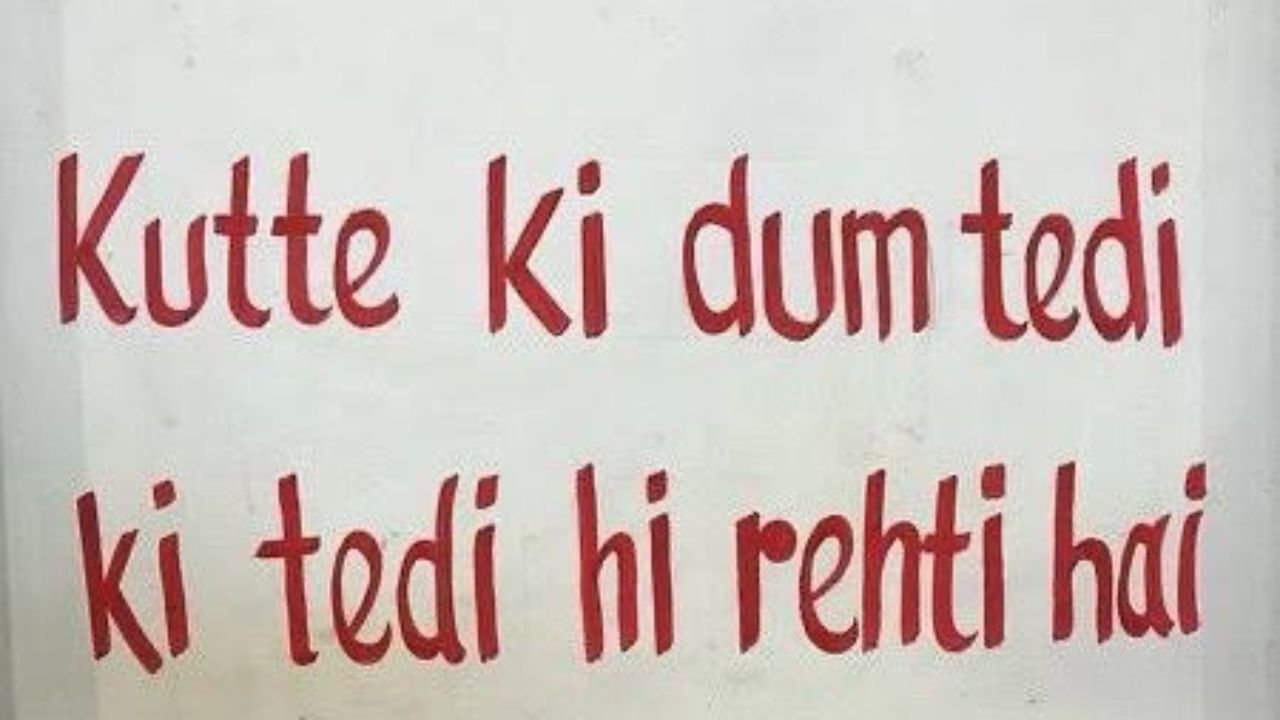 Kutte ki dum tedi
ki tedi hi rehti hai